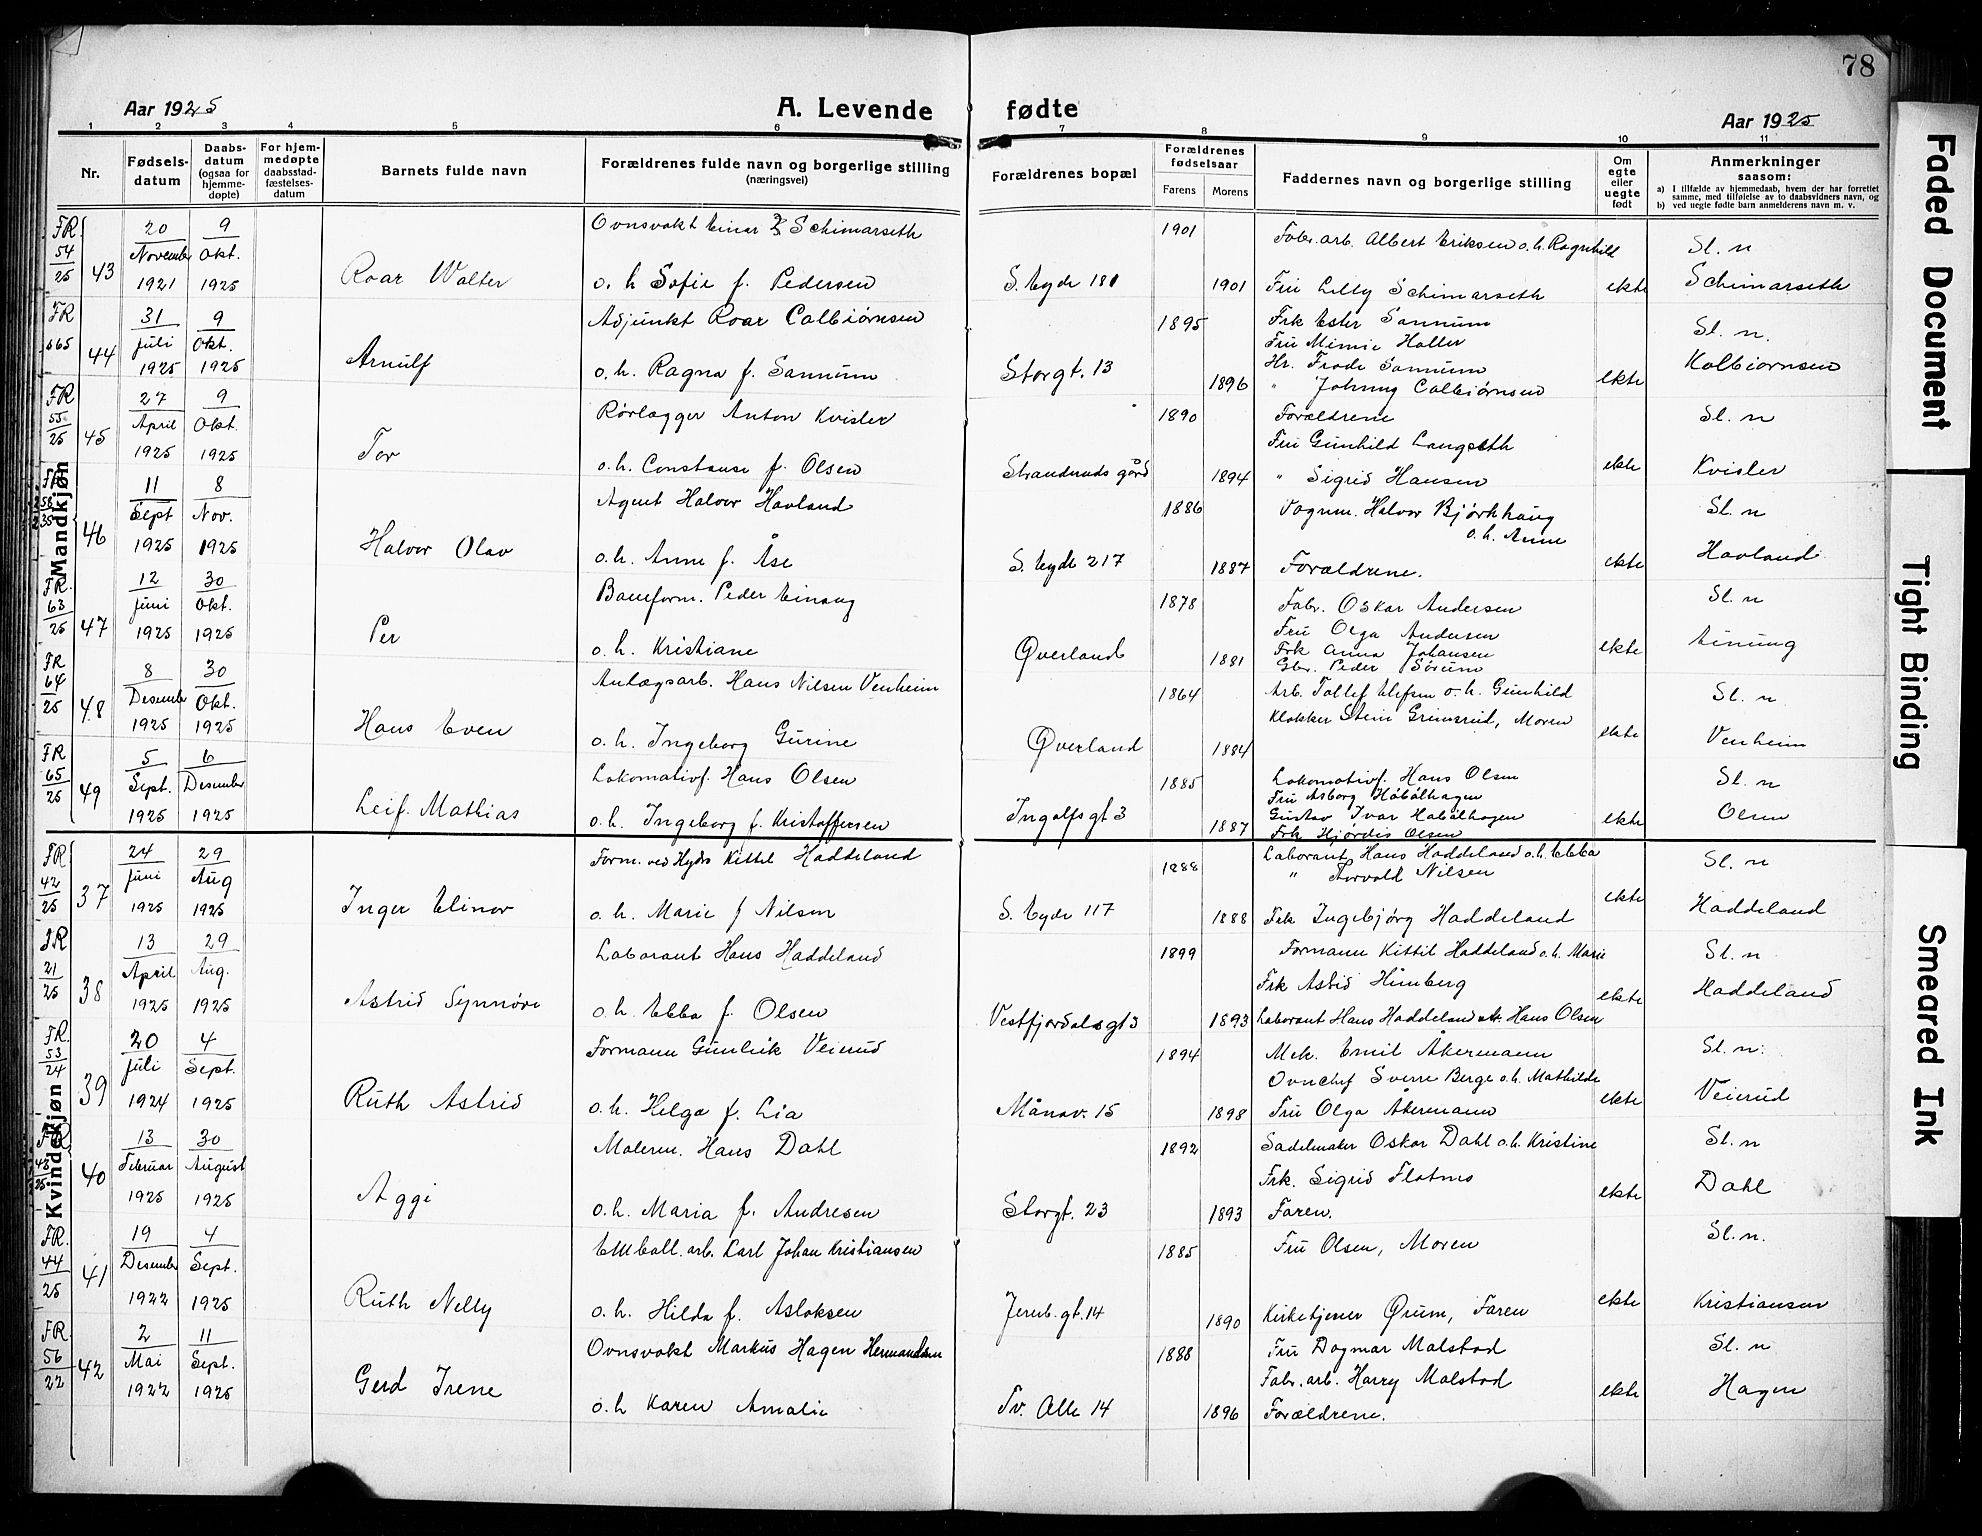 78
Aar 1925
A. Levende fødte
Aar 1925
1 2 3 4 5 6 7 8 9 10 11
Nr.
Fødsels-
datum
Daabs-
datum
(ogsaa for
hjemme-
døpte)
For hjem-
medøpte
daabsstad-
fæstelses-
datum
Barnets fulde navn
Forældrenes fulde navn og borgerlige stilling
(næringsvei)
Forældrenes bopæl
Forældrenes
fødselsaar
Farens Morens
Faddernes navn og borgerlige stilling
Om
egte
eller
uegte
født
Anmerkninger
saasom:
a) I tilfælde av hjemmedaab, hvem der har forrettet
samme, med tilføielse av to daabsvidners navn, og
b) ved uegte fødte barn anmelderens navn m. v.
Mandkjøn
FR 54/25 43
20 November 1921
9 Okt. 1925
Roar Walter
Ovnsvakt Einar Z Schimarseth
o. h Sofie f. Pedersen
S. Eyde 181
1901
1901
Fabr. arb. Albert Eriksen o. h. Ragnhild
Fru Lilly Schimarseth
ekte
Sl. n
Schimarseth
FR 44
31 Juli 1925
9 Okt. 1925
Arnulf
Adjunkt Roar Colbiørnsen
o. h. Ragna f. Sannum
Storgt. 13
1895
1896
Frk Ester Sannum
Fru Mimie Holler
Hr. Frode Sannum
" Johnny Colbiørnsen
ekte
Sl. n.
Kolbiornsen
FR 55/25 45
27 April 1925
9 Okt. 1925
Tor
Rørlægger Anton Kvisler
o. h. Constanse f. Olsen
Stranderuds gård
1890
1894
Forældrene
Fru Gunhild Langseth
" Sigrid Hansen
ekte
Sl. n
Kvisler
FR 46
11 Sept 1925
8 Nov. 1925
Halvor Olav
Agent Halvor Havland
o. h. Anne f. Åse
S. Eyde 217
1886
1887
Vognm. Halvor Bjørkhaug
o. h. Anne
Forældrene.
ekte
Sl. n
Havland
FR. 63/25 47
12 Juni 1925
30 Okt. 1925
Per
Baneform. Peder Einung
o. h. Kristiane
Øverland
1878
1881
Fabr. Oskar Andersen
Fru Olga Andersen
Frk Anna Johansen
Gbr. Peder Sørum
ekte
Sl. n
Einung
FR 64/25 48
8 Desember 1925
30 Okt. 1925
Hans Even
Anlægsarb. Hans Nilsen Venheim
o. h. Ingeborg Gurine
Øverland
1864
1884
Arb. Tollef Elefsen o. h. Gunhild
Klokker Stein Grimsrud, Moren
ekte
Sl. n
Venheim
FR 65/25 49
5 Sept. 1925
6 Desember 1925
Leif. Mathias
Lokomativf. Hans Olsen
o. h. Ingeborg f. Kristoffersen
Ingolfsgt 3
1885
1887
Lokomativf. Hans Olsen
Fru Asborg Håbålhagen
Gustav Ivar Habålhagen
Frk Hjørdis Olsen
ekte
Sl. n
Olsen
Kvindekjøn
FR 42/25 37
24 Juni 1925
29 Aug 1925
Inger Elinor
Form. ved Hydro Kittil Haddeland
o. h. Marie f Nilsen
S. Eyde 117
1888
1888
Laborant Hans Haddeland o. h. Ebba
" Torvald Nilsen
Frk Ingebjørg Haddeland
ekte
Sl. n
Haddeland
FR 21/25 38
13 April 1925
29 Aug. 1925
Astrid Synnøve
Laborant Hans Haddeland
o. h. Ebba f. Olsen
Vestfjordalsgt 3
1899
1893
Formann Kittil Haddeland o. h. Marie
Frk Astid Himberg
Laborant Hans Haddeland Hans Olsen
ekte
Sl. n
Haddeland
FR. 53/24 39
20 Juli 1924
4 Sept. 1925
Ruth Astrid
Formann Gunleik Veierud
o. h. Helga f. Lia
Månav. 15
1894
1898
Mek. Emil Åkermann
Ovnchef Sverre Berge o. h. Mathilde
Fru Olga Åkermann
ekte
Sl. n.
Veierud
FR 40
13 Februar 1925
30 August 1925
Aggi
Malerm. Hans Dahl
o. h. Maria f. Andresen
Storgt. 23
1892
1893
Sadelmaker Oskar Dahl o. h. Kristine
Frk. Sigrid Flatnes
Faren.
ekte
Sl. n
Dahl
FR. 44/25 41
19 Desember 1922
4 Sept. 1925
Ruth Nelly
Emball. arb. Karl Johan Kristiansen
o. h. Hilda f. Aslaksen
Jernb. gt. 14
1885
1890
Fru Olsen, Moren
Kirketjener Ørum, Faren
ekte
Sl. n.
Kristiansen
FR. 56/22 42
2 Mai 1922
11 Sept. 1925
Gerd Irene
Ovnsvakt Markus Hagen Hermandsen
o. h Karen Amalie
Tv. Alle 14
1888
1896
Fru Dagmar Malstad
Fabr. arb. Harry Malstad
Forældrene.
ekte
Sl. n
Hagen
Faded Document
Tight Binding
Smeared Ink